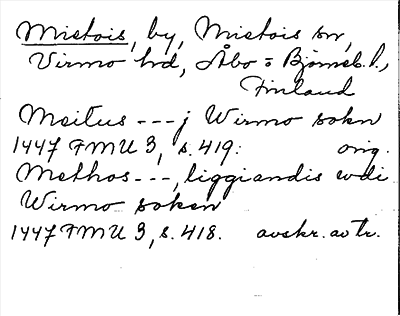 Mietois, by, Mietois sn,
Virmo hd, Åbo = Björneb. l.,
Finland
Meitus --- j Wirmo sokn
1447 FMU 3, s. 419. orig.
Methos ---, liggiandis widi
Wirmo soken
1447 FMU 3, s. 418. avskr. av tr.